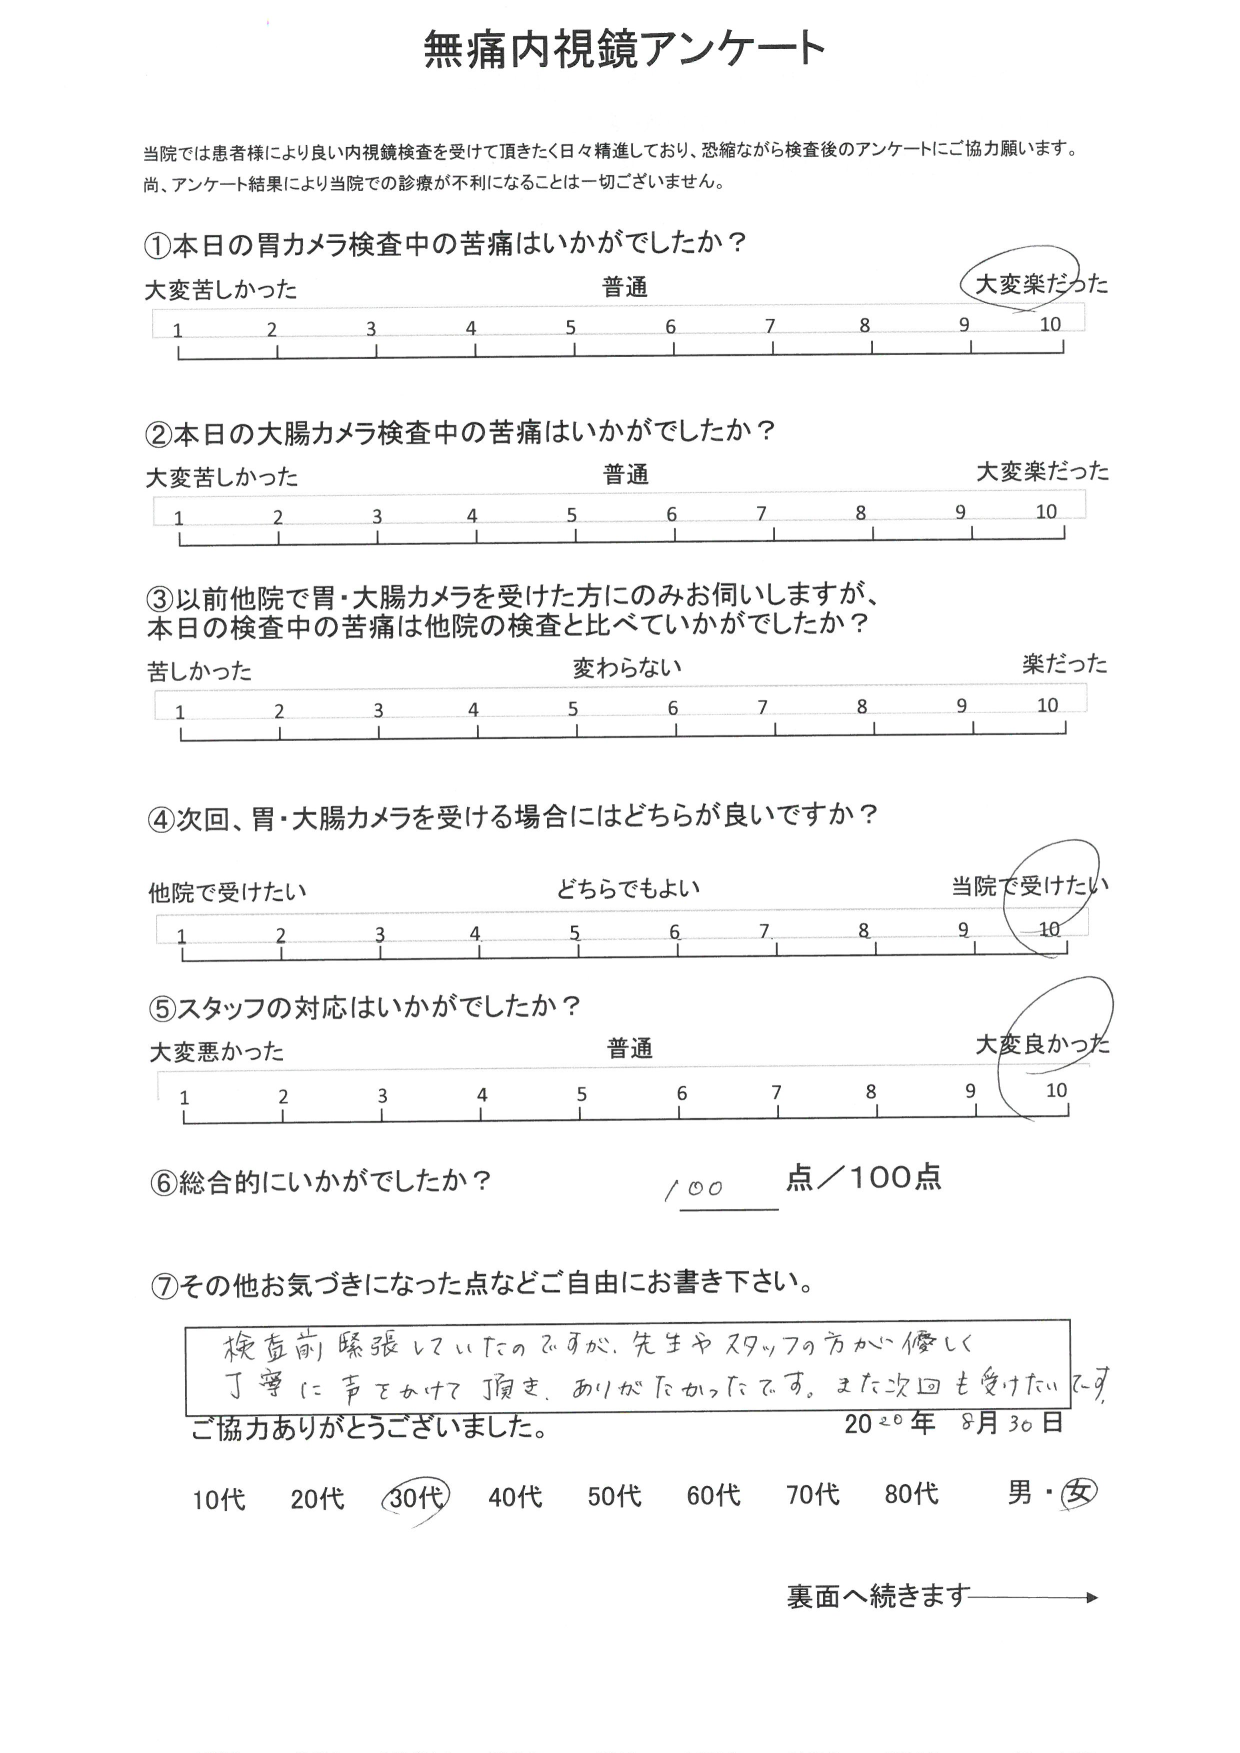 無痛内視鏡アンケート
当院では患者様により良い内視鏡検査を受けて頂きたく日々精進しており、恐縮ながら検査後のアンケートにご協力願います。
尚、アンケート結果により当院での診療が不利になることは一切ございません。
①本日の胃カメラ検査中の苦痛はいかがでしたか？
大変苦しかった 普通 大変楽だった
1 2 3 4 5 6 7 8 9 10
②本日の大腸カメラ検査中の苦痛はいかがでしたか？
大変苦しかった 普通 大変楽だった
1 2 3 4 5 6 7 8 9 10
③以前他院で胃・大腸カメラを受けた方にのみお伺いしますが、
本日の検査中の苦痛は他院の検査と比べていかがでしたか？
苦しかった 変わらない 楽だった
1 2 3 4 5 6 7 8 9 10
④次回、胃・大腸カメラを受ける場合にはどちらが良いですか？
他院で受けたい どちらでもよい 当院で受けたい
1 2 3 4 5 6 7 8 9 10
⑤スタッフの対応はいかがでしたか？
大変悪かった 普通 大変良かった
1 2 3 4 5 6 7 8 9 10
⑥総合的にいかがでしたか？ 100 点／100点
⑦その他お気づきになった点などご自由にお書き下さい。
検査前緊張していたのですが、先生やスタッフの方が優しく
丁寧に声をかけて頂き、ありがたかったです。また次回も受けたいです。
ご協力ありがとうございました。 2020年 8月30日
10代 20代 30代 40代 50代 60代 70代 80代 男・女
裏面へ続きます